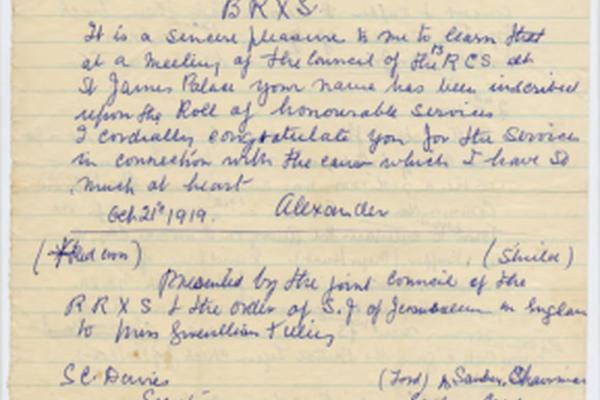 BRXS.
It is a sincere pleasure to me to learn that
at a meeting of the Council of the BRCS at
St James Palace your name has been inscribed
upon the Roll of honourable services
I cordially congratulate you for the services
in connection with the cause which I have so
much at heart
Oct 21st 1919. Alexander
(Red cross) (Shield)
Presented by the joint Council of the
BRXS & the order of S.J of Jerusalem in England
to Miss Gwenllian
S C Davies (Lord) Chairman